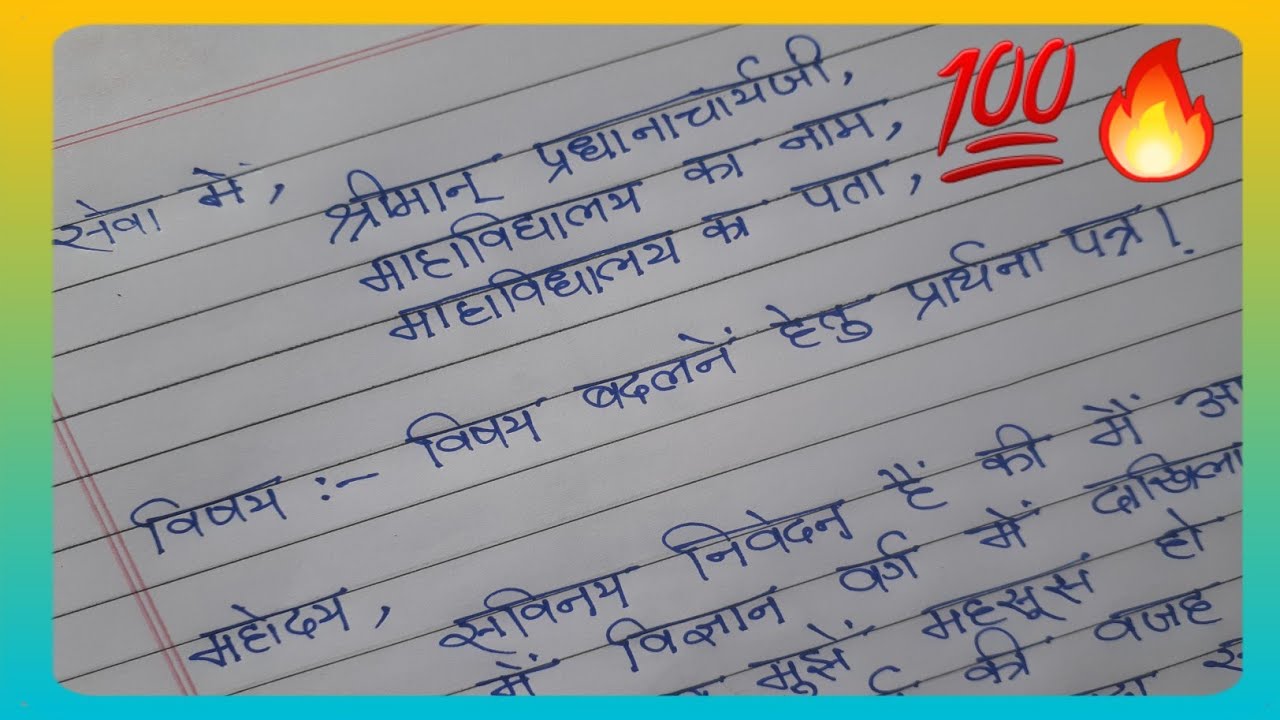 सेवा में,
श्रीमान् प्रधानाचार्यजी,
माहाविद्यालय का नाम,
माहाविद्यालय का पता,
विषय :- विषय बदलनें हेतु प्रार्थना पत्र।
महोदय,
सविनय निवेदन हैं की मैं
में विज्ञान वर्ग में दाखिला
मुझें महसूस हो
की वजह
100